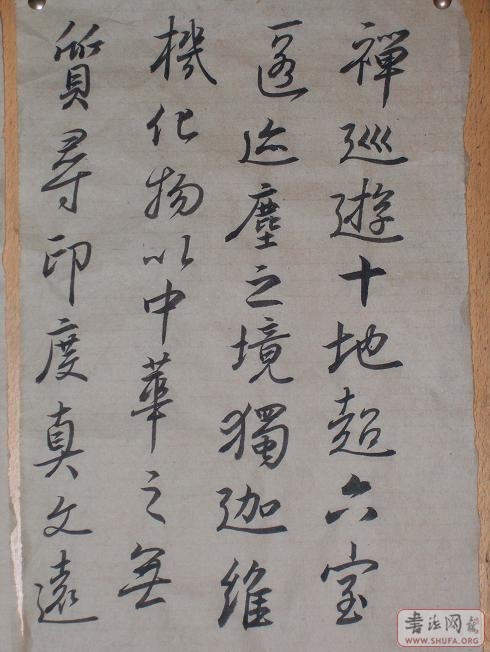 禪巡遊十地超六室
匿迹塵之境獨迦維
機化物以中華之無
質尋印度真文遠
书法网
WWW.SHUFA.ORG